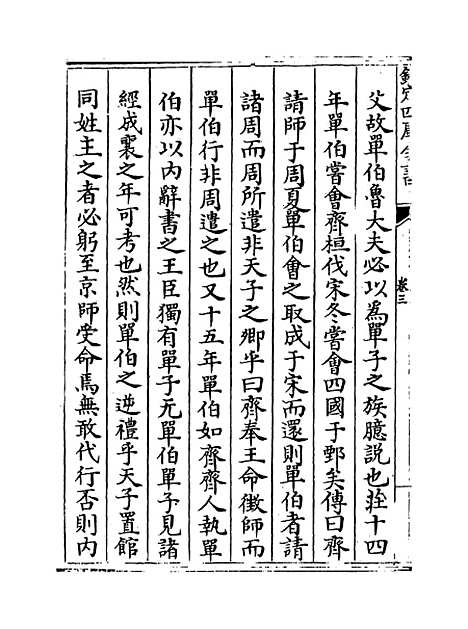 欽定四庫全書
卷三
父故單伯魯大夫必以為單子之族臆說也莊十四
年單伯嘗會齊桓伐宋冬嘗會四國于鄄矣傳曰齊
請師于周夏單伯會之取成于宋而還則單伯者請
諸周而周所遣非天子之卿乎曰齊奉王命徵師而
單伯行非周遣之也又十五年單伯如齊齊人執單
伯亦以內辭書之王臣獨有單子无單伯單子見諸
經成襄之年可考也然則單伯之逆禮乎天子置館
同姓主之者必躬至京師受命焉無敢代行否則內